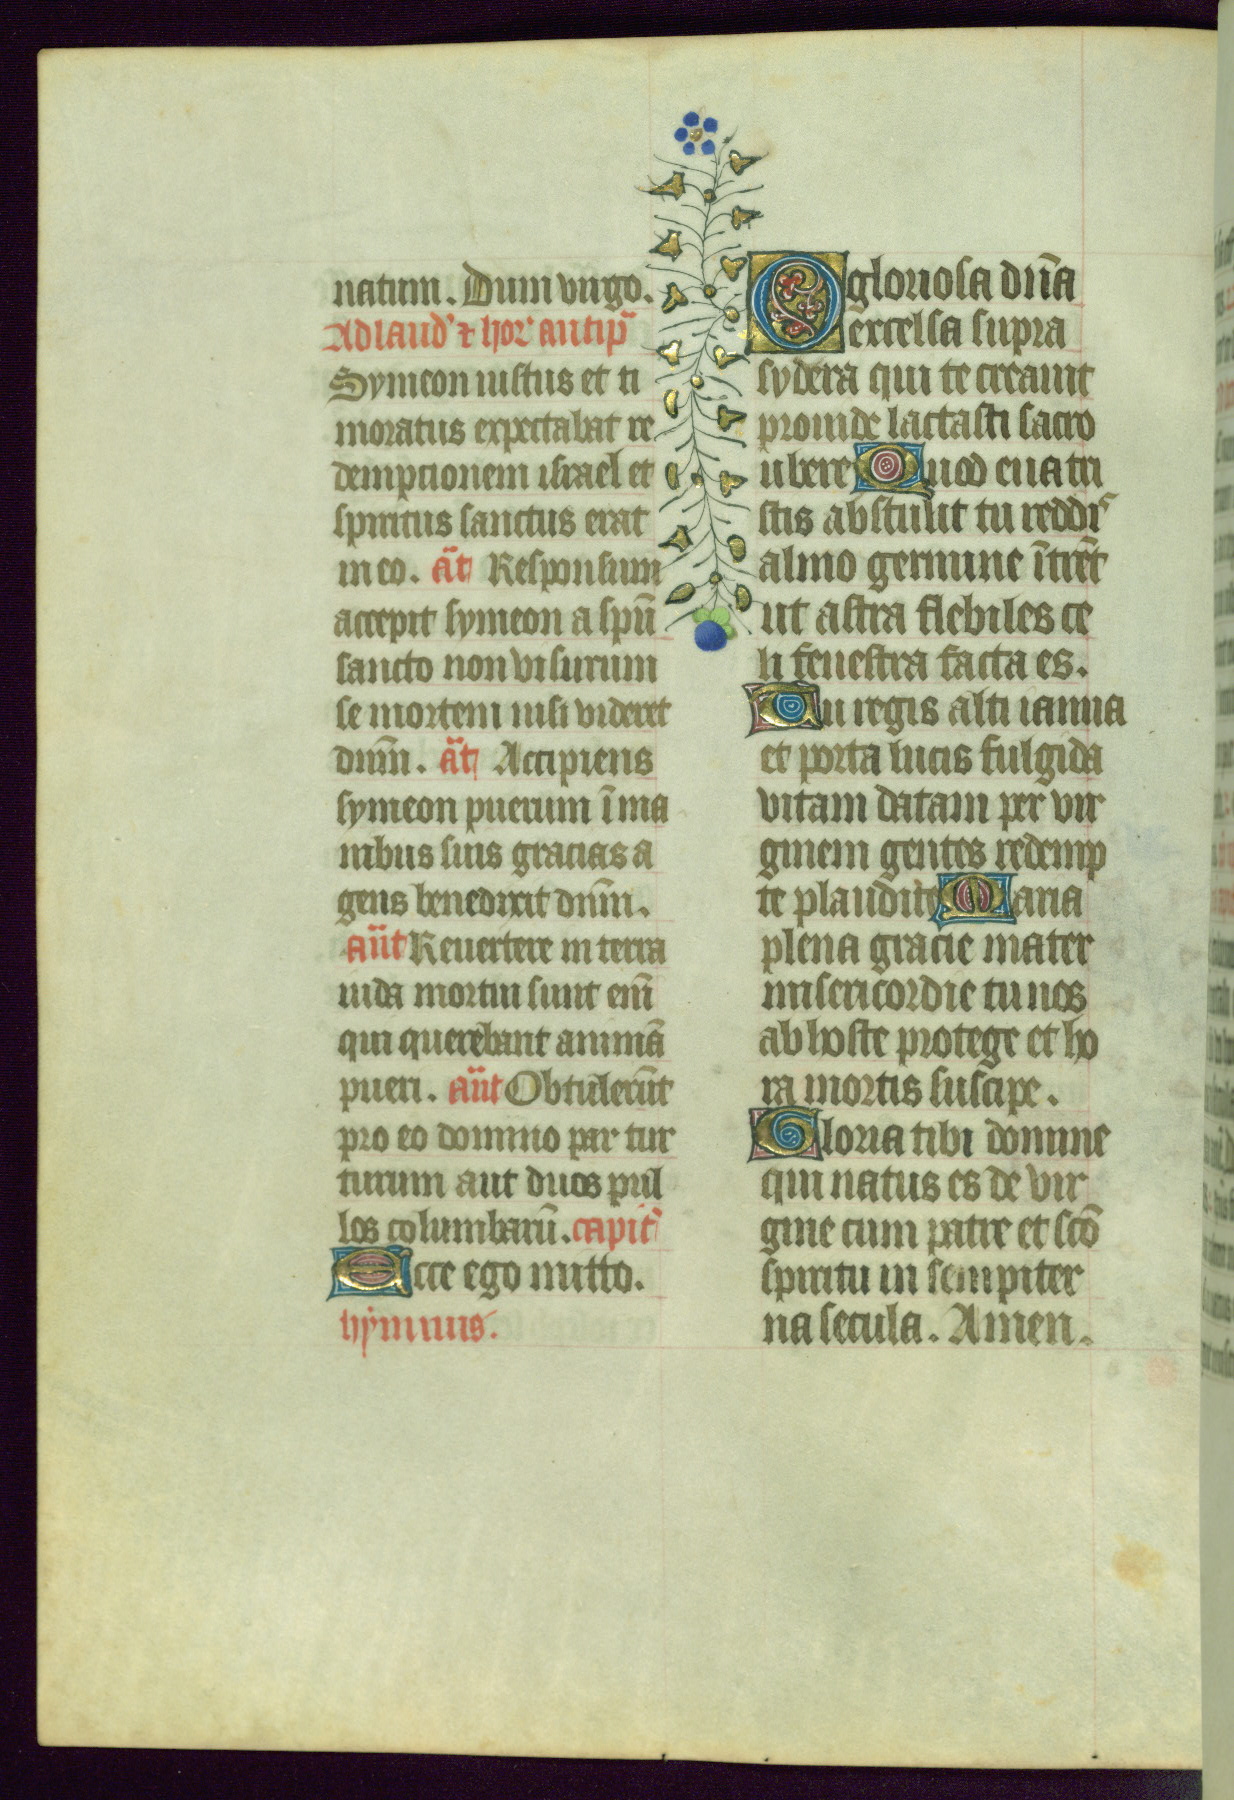 natum. Dum uirgo.
Ad laud' ⁊ hor' antip̄
Symeon iustus et ti
moratus expectabat re
demptionem israel et
spiritus sanctus erat
in eo. āt Responsum
accepit symeon a spū
sancto non visurum
se mortem nisi videret
dnm̄. āt Accipiens
symeon puerum ī ma
nibus suis gracias a
gens benedixit dnm̄.
an̄t Reuertere in terra
iuda mortui sunt enī
qui querebant animā
pueri. an̄t Obtulerūt
pro eo domino par tur
turum aut duos pul
los columbarū. capit'
Ecce ego mitto.
hymnus.
O gloriosa dn̄a
excelsa supra
sydera qui te creauit
prouide lactasti sacro
ubere Quod eua tri
stis abstulit tu reddis
almo germine ītrēt
ut astra flebiles ce
li fenestra facta es.
Tu regis alti ianua
et porta lucis fulgida
vitam datam per vir
ginem gentes redemp
te plaudite Maria
plena gracie mater
misericordie tu nos
ab hoste protege et ho
ra mortis suscipe.
Gloria tibi domine
qui natus es de vir
gine cum patre et scō
spiritu in sempiter
na secula. Amen.